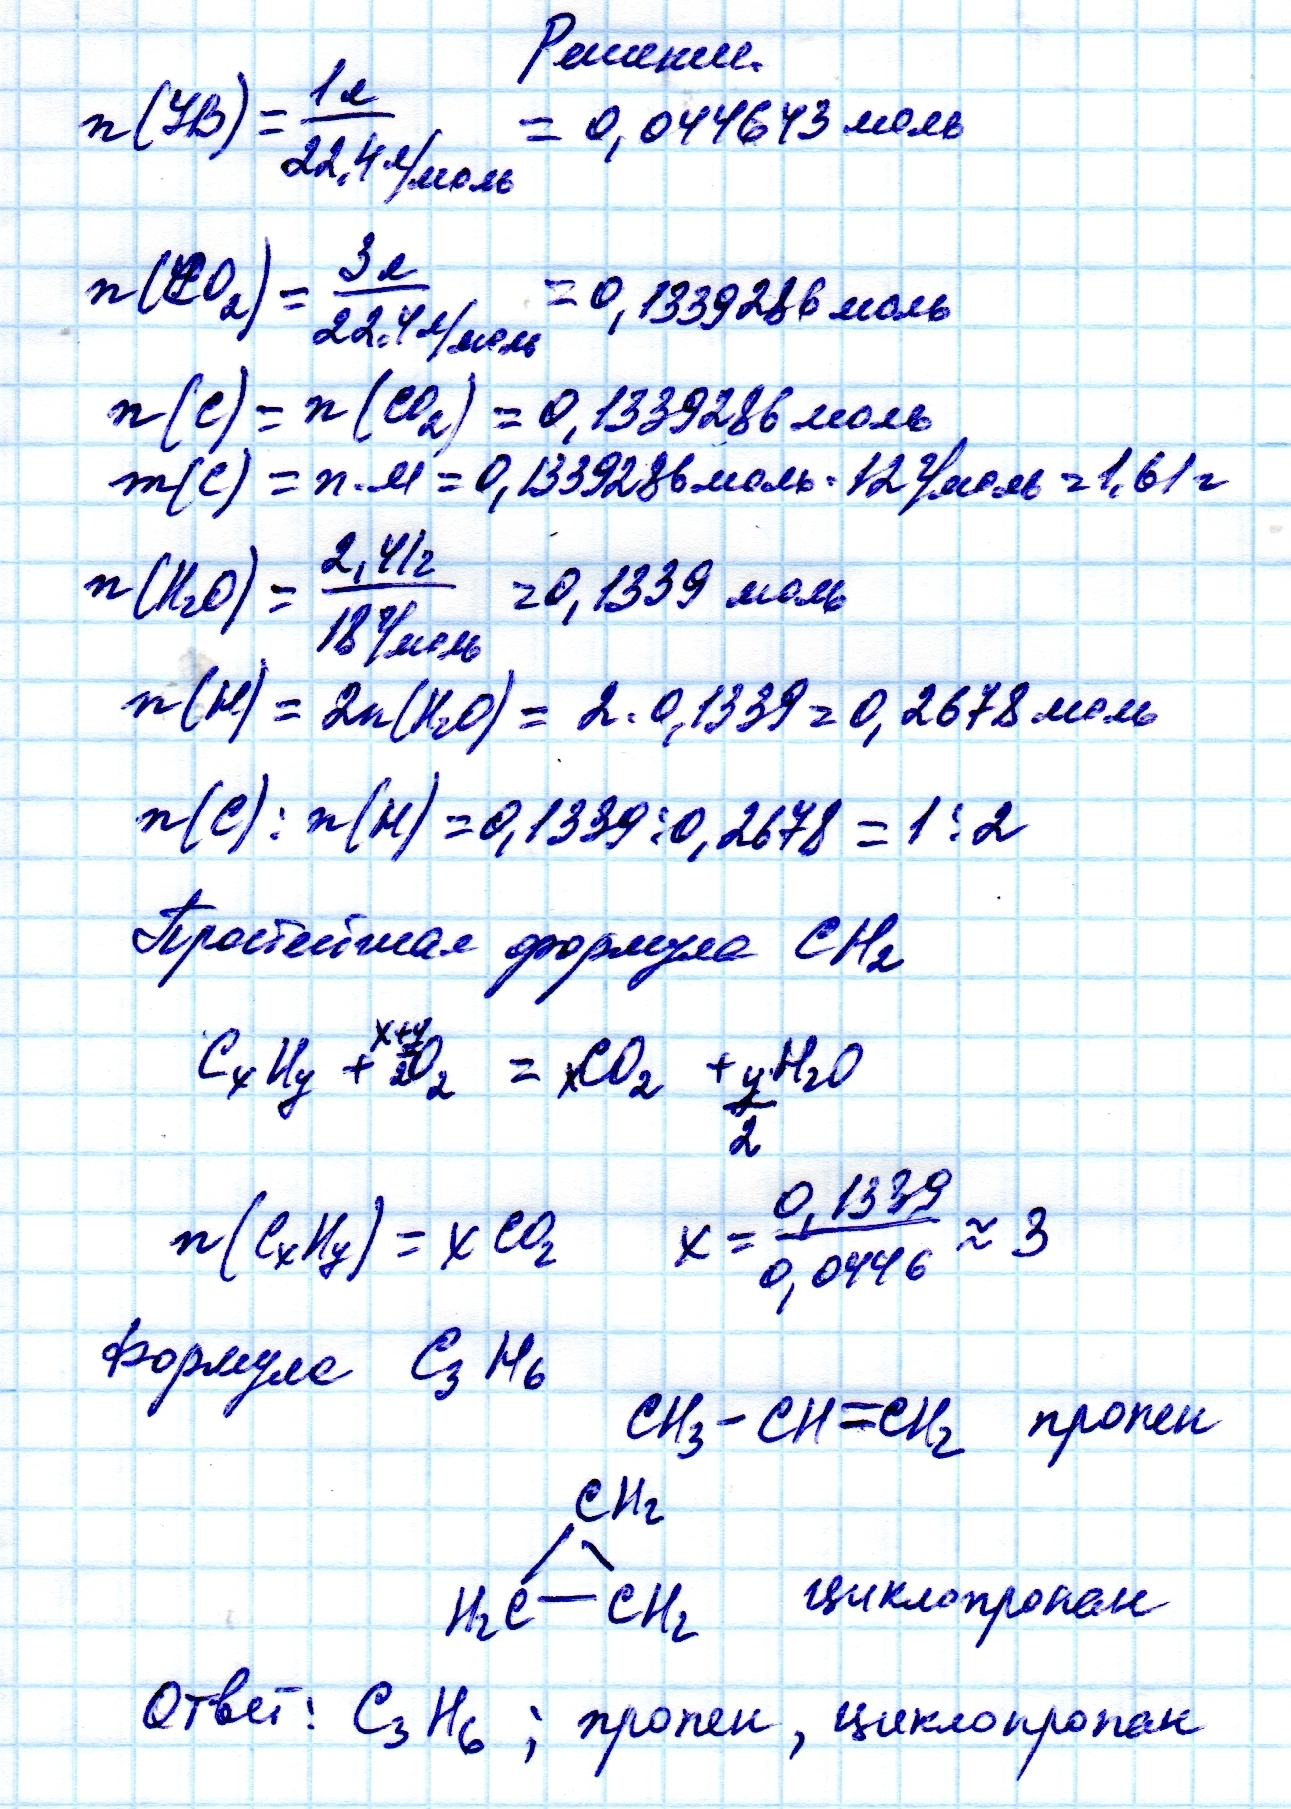 Решение.
n(УВ) = 1л / 22,4 л/моль = 0,044643 моль
n(CO₂) = 3л / 22.4 л/моль = 0,1339286 моль
n(C) = n(CO₂) = 0,1339286 моль
m(C) = n·M = 0,1339286 моль · 12 г/моль = 1,61 г
n(H₂O) = 2,41г / 18 г/моль = 0,1339 моль
n(H) = 2n(H₂O) = 2·0,1339 = 0,2678 моль
n(C) : n(H) = 0,1339 : 0,2678 = 1 : 2
Простейшая формула CH₂
CₓHᵧ + O₂ = xCO₂ + y/2 H₂O
n(CₓHᵧ) = x CO₂ x = 0,1339 / 0,0446 ≈ 3
Формула C₃H₆
CH₃ – CH = CH₂ пропен
CH₂
H₂C — CH₂ циклопропан
Ответ: C₃H₆ ; пропен, циклопропан